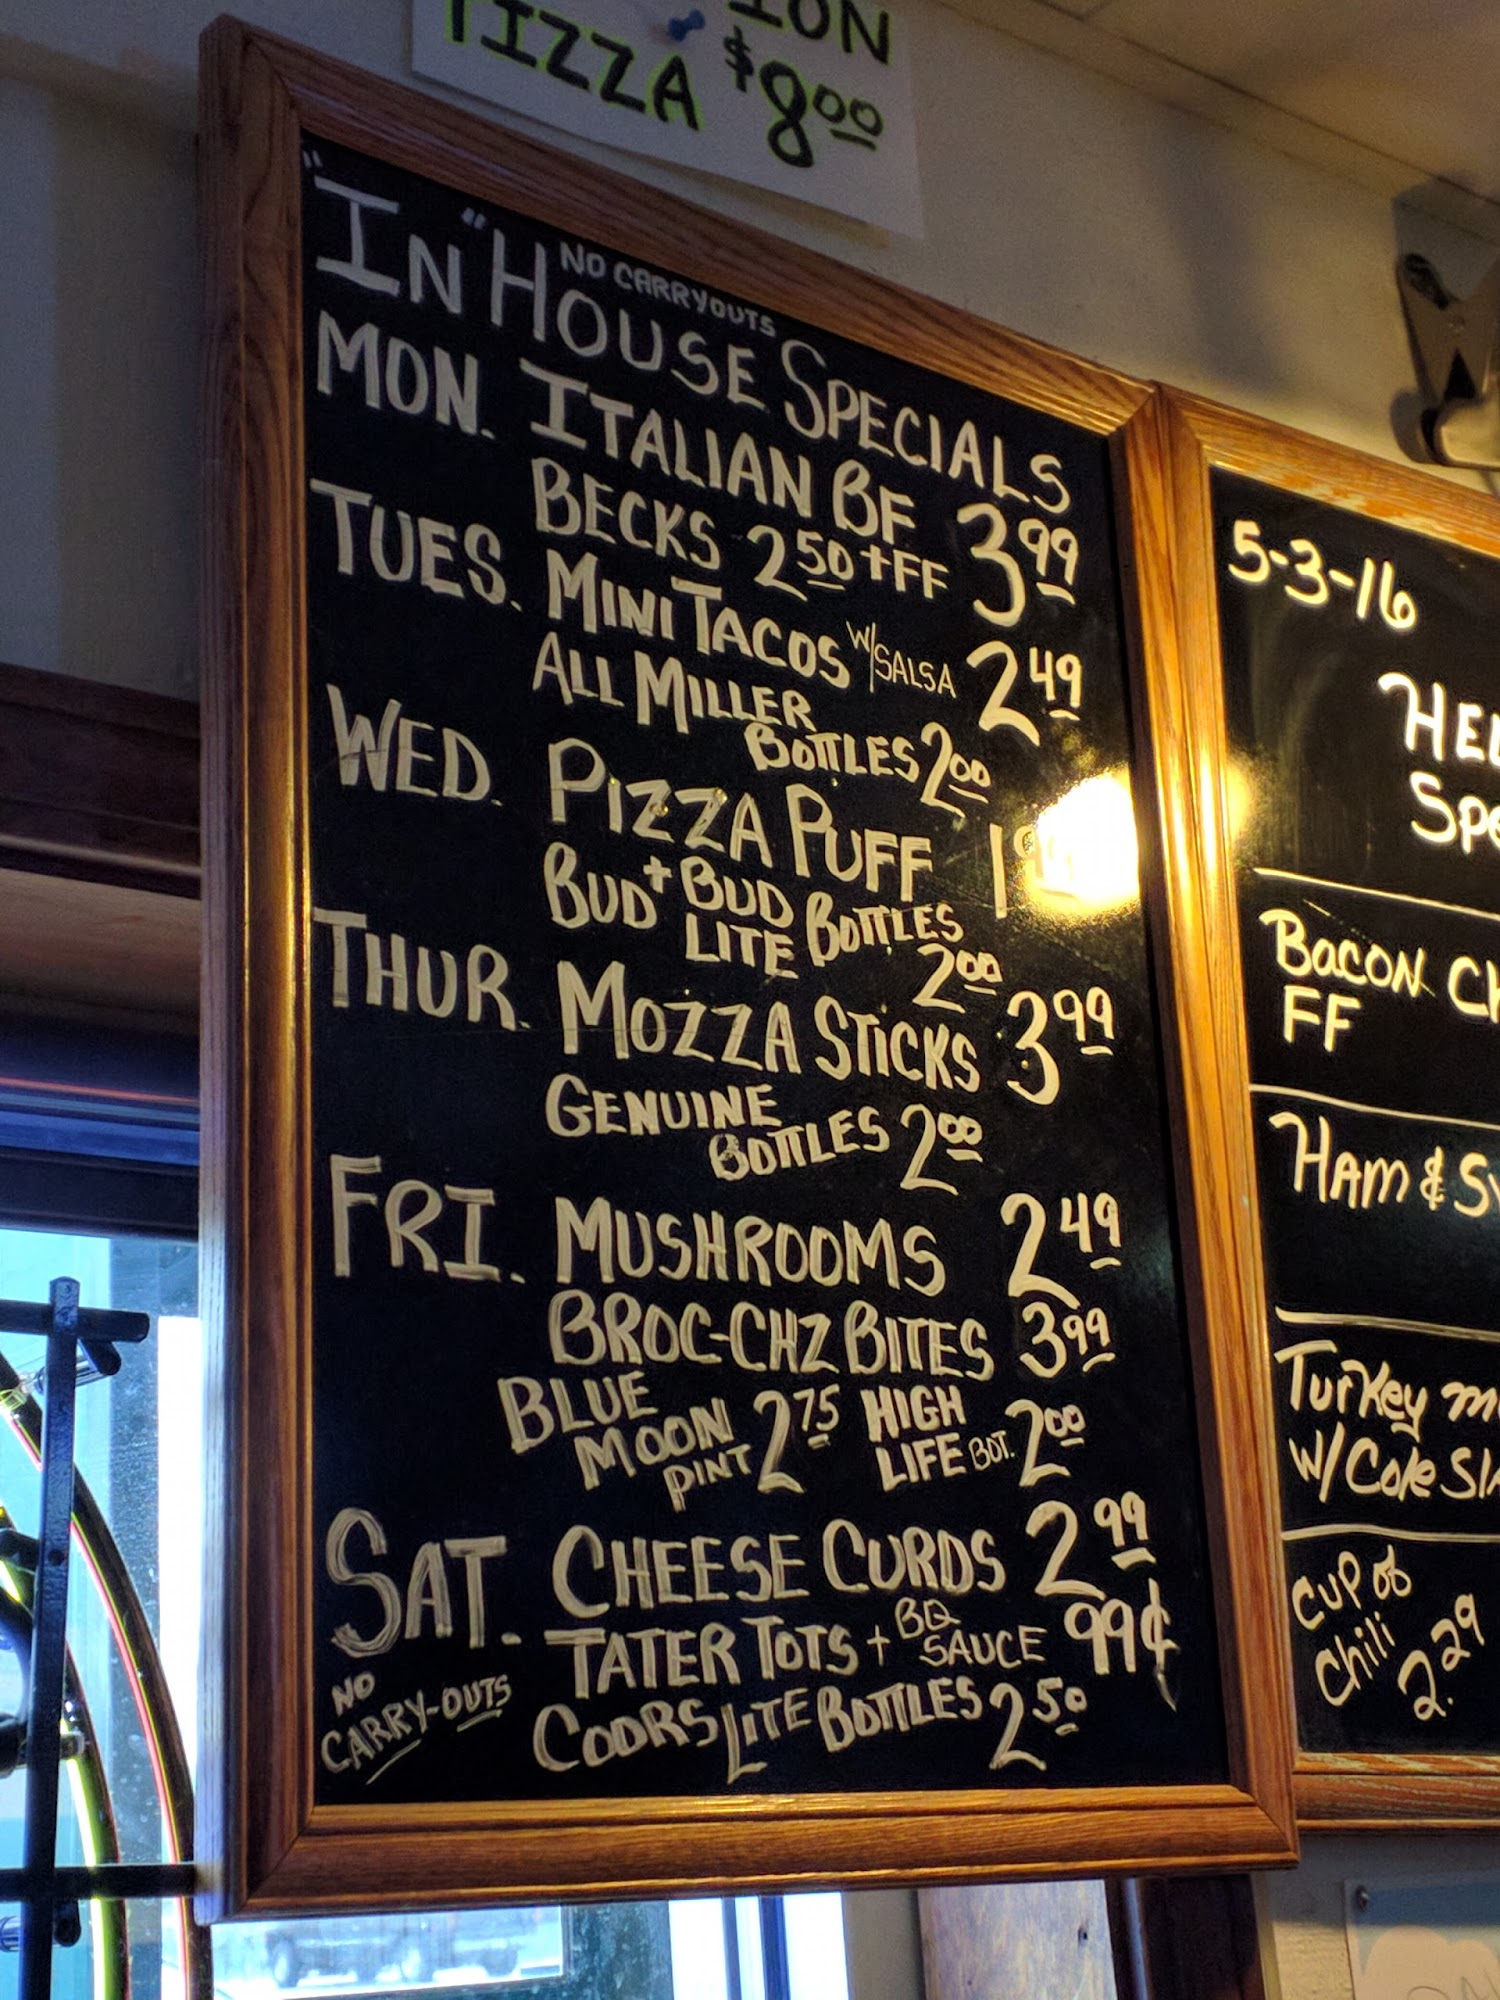 PIZZA $8.00
"IN" HOUSE SPECIALS
NO CARRYOUTS
MON. ITALIAN BF 3.99
BECKS 2.50 + FF
TUES. MINI TACOS W/SALSA 2.49
ALL MILLER
BOTTLES 2.00
WED. PIZZA PUFF
BUD + BUD
LITE BOTTLES
2.00
THUR. MOZZA STICKS 3.99
GENUINE
BOTTLES 2.00
FRI. MUSHROOMS 2.49
BROC-CHZ BITES 3.99
BLUE
MOON
PINT 2.75 HIGH
LIFE BOT. 2.00
SAT. CHEESE CURDS 2.99
TATER TOTS + BQ
SAUCE 99¢
COORS LITE BOTTLES 2.50
NO
CARRY-OUTS
5-3-16
BACON
FF
HAM &
Turkey
w/Cole
Cup of
Chili
2.29